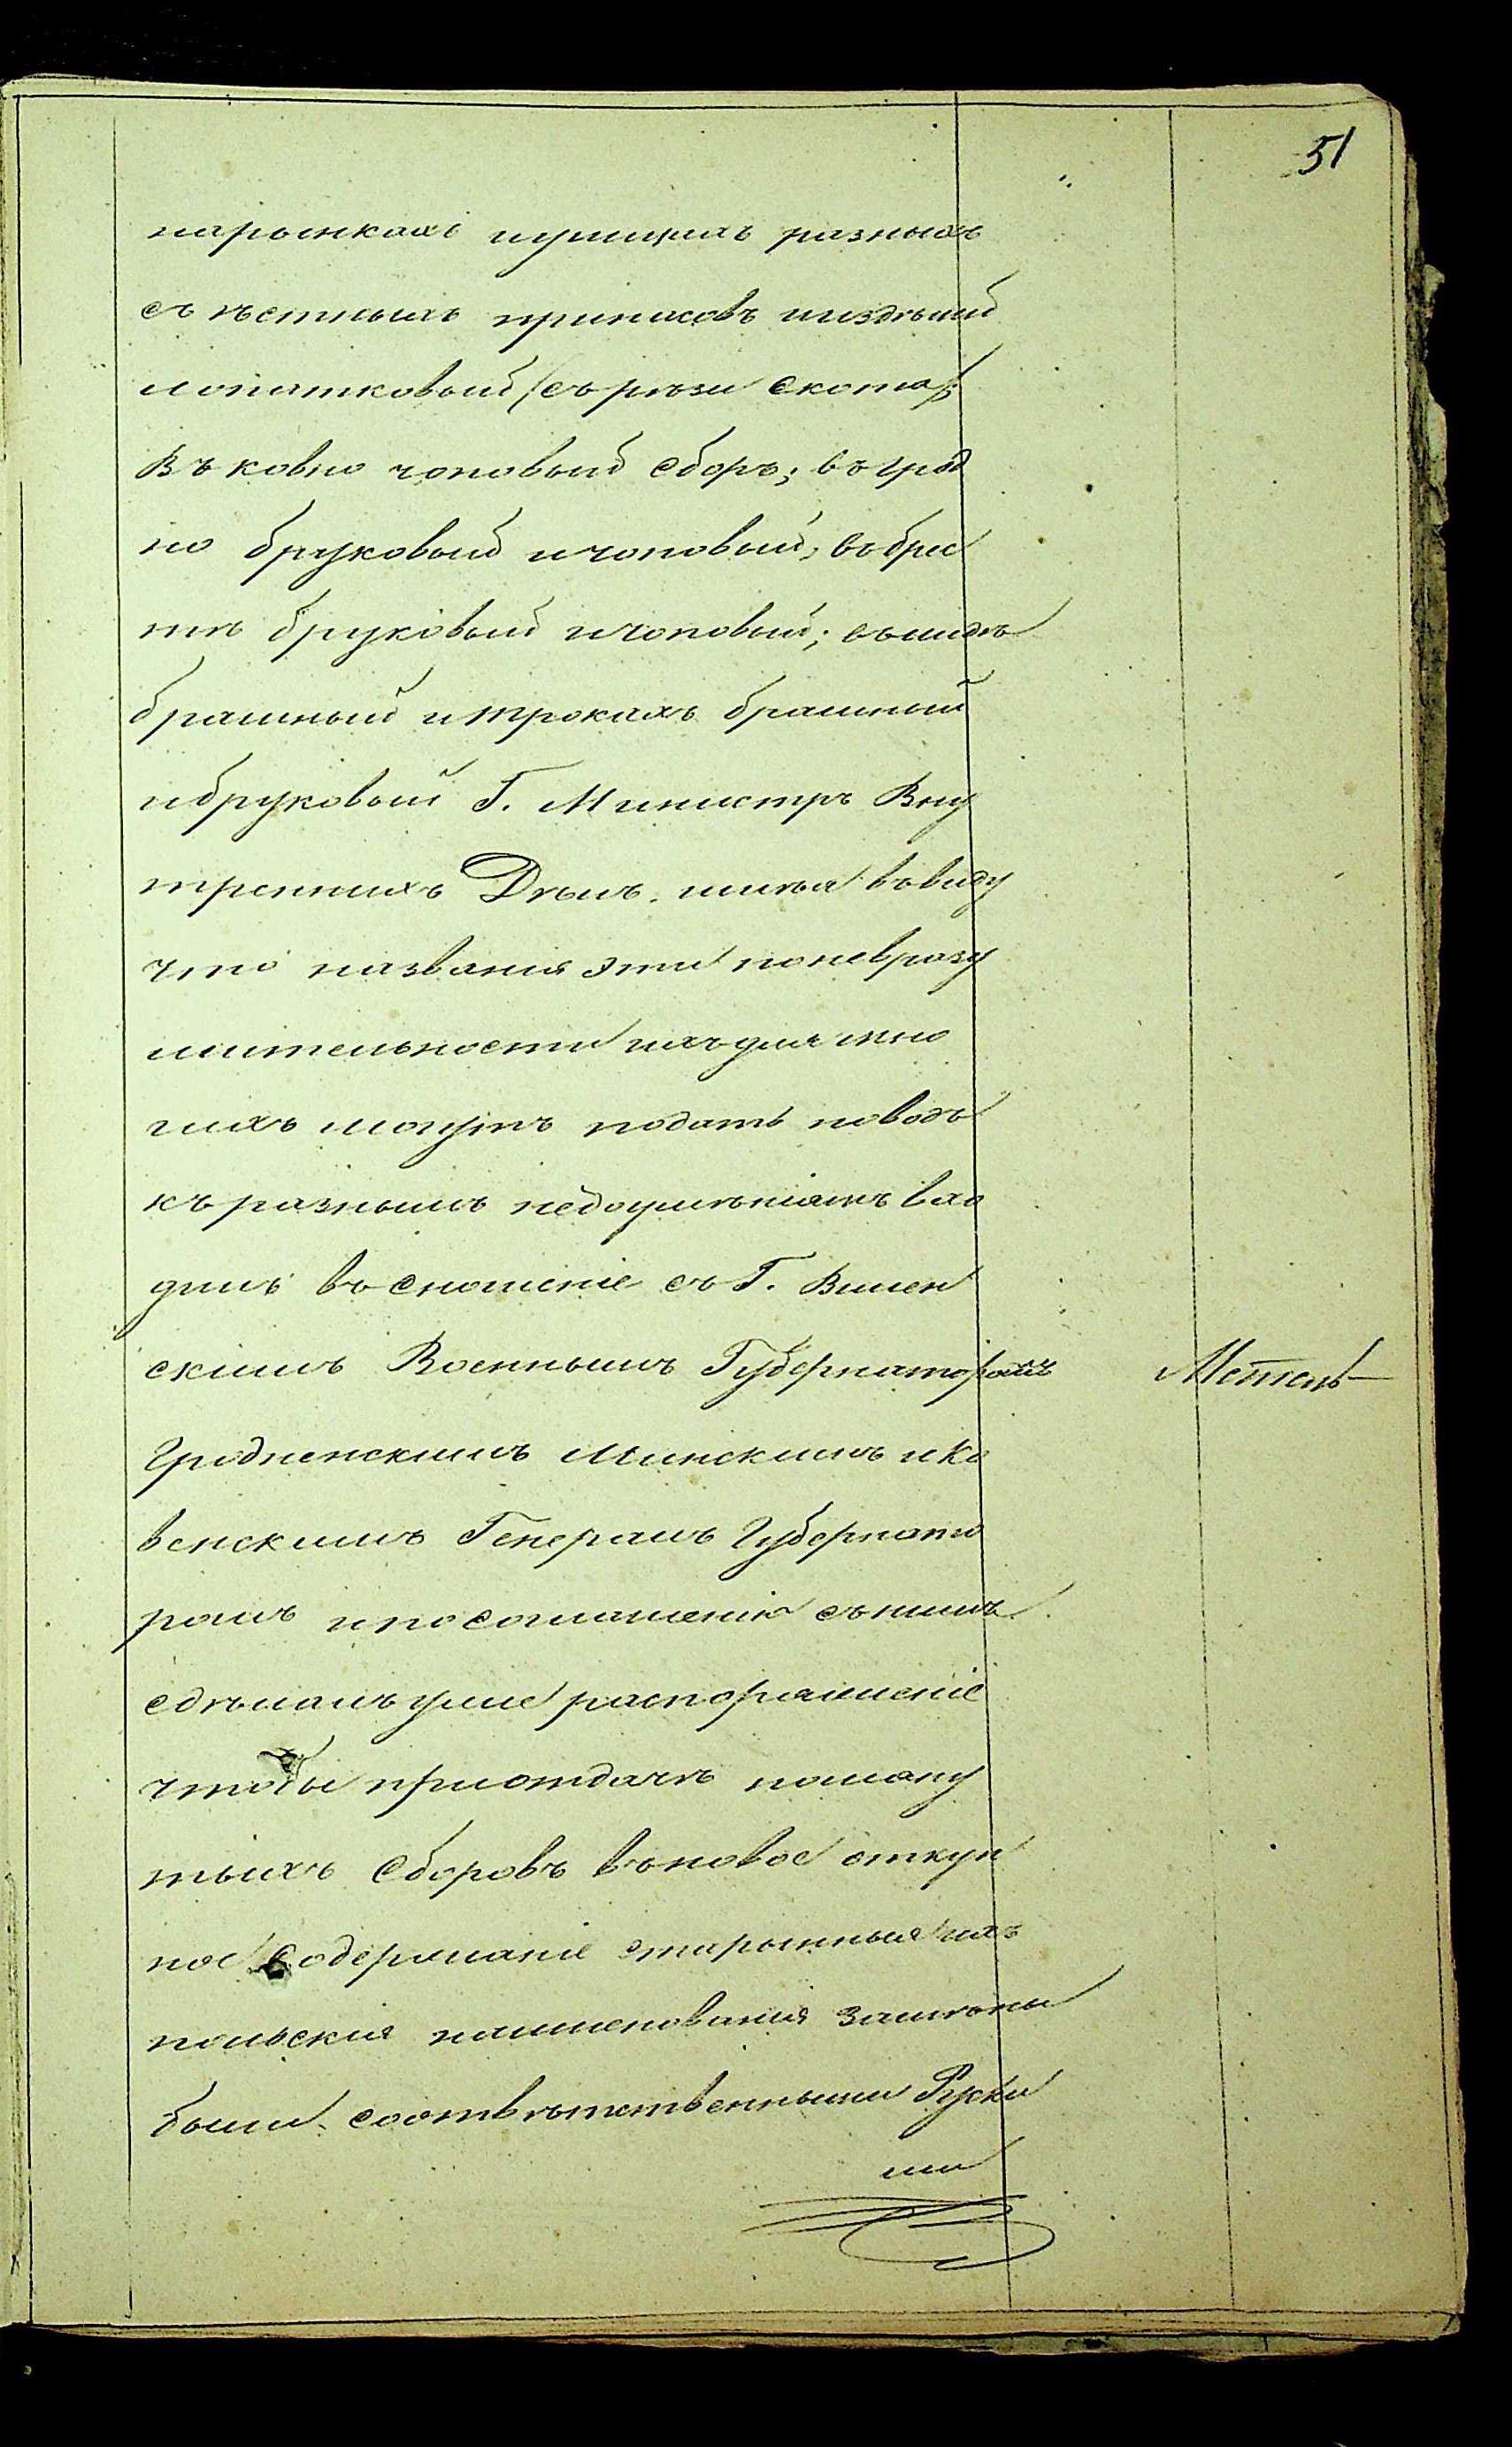 51
нарынкахъ иулицахъ разныхъ
съѣстныхъ припасовъ издѣлій
лопатковый (съ рѣзи скота);
Въ ковно чоповый сборъ; въ Грод
но бруковый ичоповый; въ брес
тѣ бруковый ичоповый; вълидѣ
брашный и трокахъ брашный
ибруковый Г. Министръ Вну
треннихъ Дѣлъ. имѣя въвиду
что названія эти поневразу
мительности ихъ для мно
гихъ могутъ подать поводъ
къ разнымъ недоумѣніямъ вхо
дилъ въ сношеніе съ Г. Вилен
скимъ Военнымъ Губернаторомъ
Гродненскимъ Минскимъ и Ко
венскимъ Генералъ Губернато
ромъ ипо соглашенію съ нимъ
сдѣлалъ уже распоряженіе
чтобы приотдачѣ помяну
тыхъ сборовъ въновое откуп
ное содержаніе старинныя ихъ
польскія наименованія замѣнены
были соотвѣтственными Руски
ми